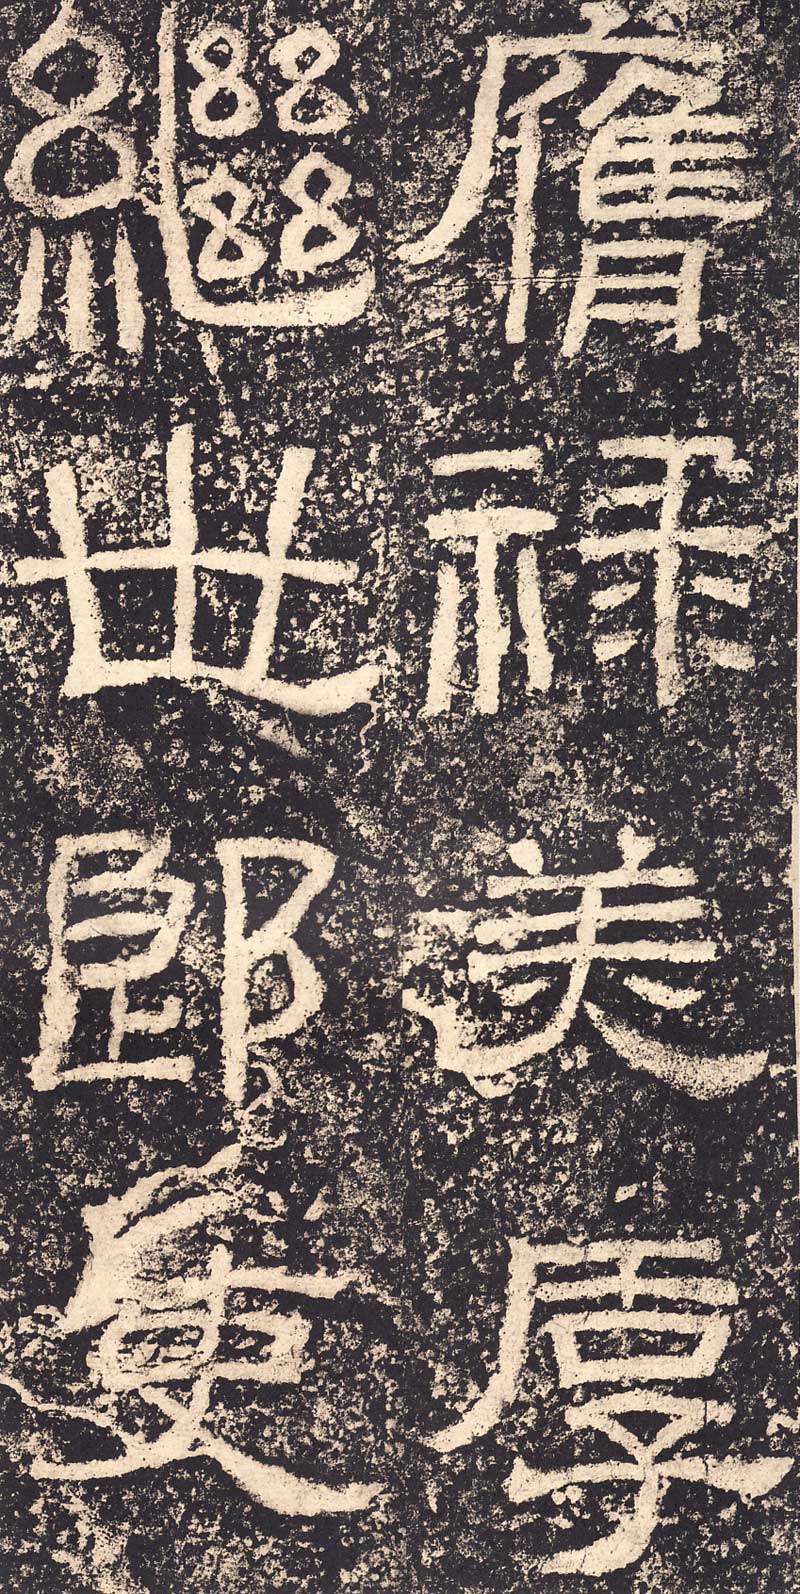 膺禄美厚
繼世郎吏